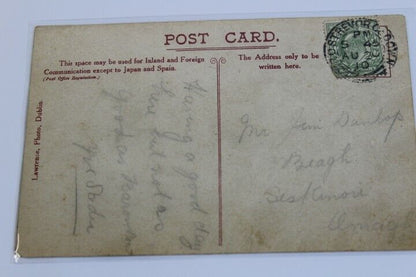 POST CARD.
This space may be used for Inland and Foreign
Communication except to Japan and Spain.
(Post Office Regulation.)
The Address only to be
written here.
Lawrence, Photo, Dublin
Having a good day
here but not as
good as
Mr Dunlop
Beagh
Seskinore
Omagh